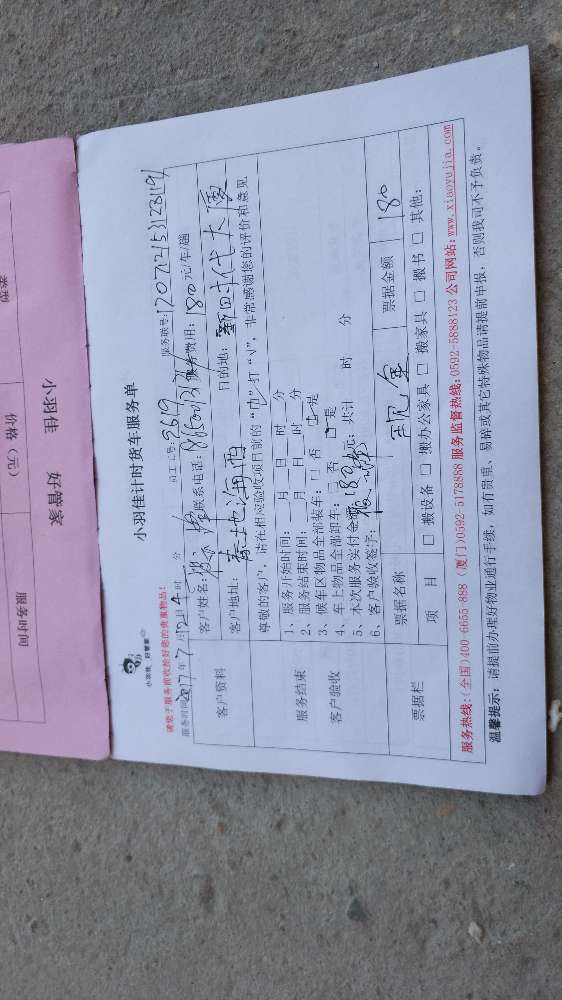 小羽佳 好管家
类型
价格（元）
服务时间
小羽佳 好管家
小羽佳计时货车服务单
请您于服务前收拾好您的贵重物品！
服务时间:2017年7月12日4时 分 员工工号:2619 服务联号:1207121531231191
客户资料
客户姓名: 联系电话: 服务费用:180元/车/趟
客户地址: 泰地海西 目的地: 新时代大厦
服务结束
客户验收
尊敬的客户，请在相应验收项目前的“□”打“√”，非常感谢您的评价和意见
1、服务开始时间: 月 日 时 分
2、服务结束时间: 月 日 时 分
3、候车区物品全部装车: □否 □是
4、车上物品全部卸车: □否 □是
5、本次服务实付金额180元; 共计 时 分
6、客户验收签字:
票据栏
票据名称 现金 票据金额 180
项目 □搬设备 □搬办公家具 □搬家具 □搬书 □其他:
服务热线:(全国)400-6655-888 (厦门)0592-5178888 服务监督热线:0592-5888123 公司网站:www.xiaoyujia.com
温馨提示: 请提前办理好物业通行手续，如有贵重、易碎或其它特殊物品请提前申报，否则我司不予负责。